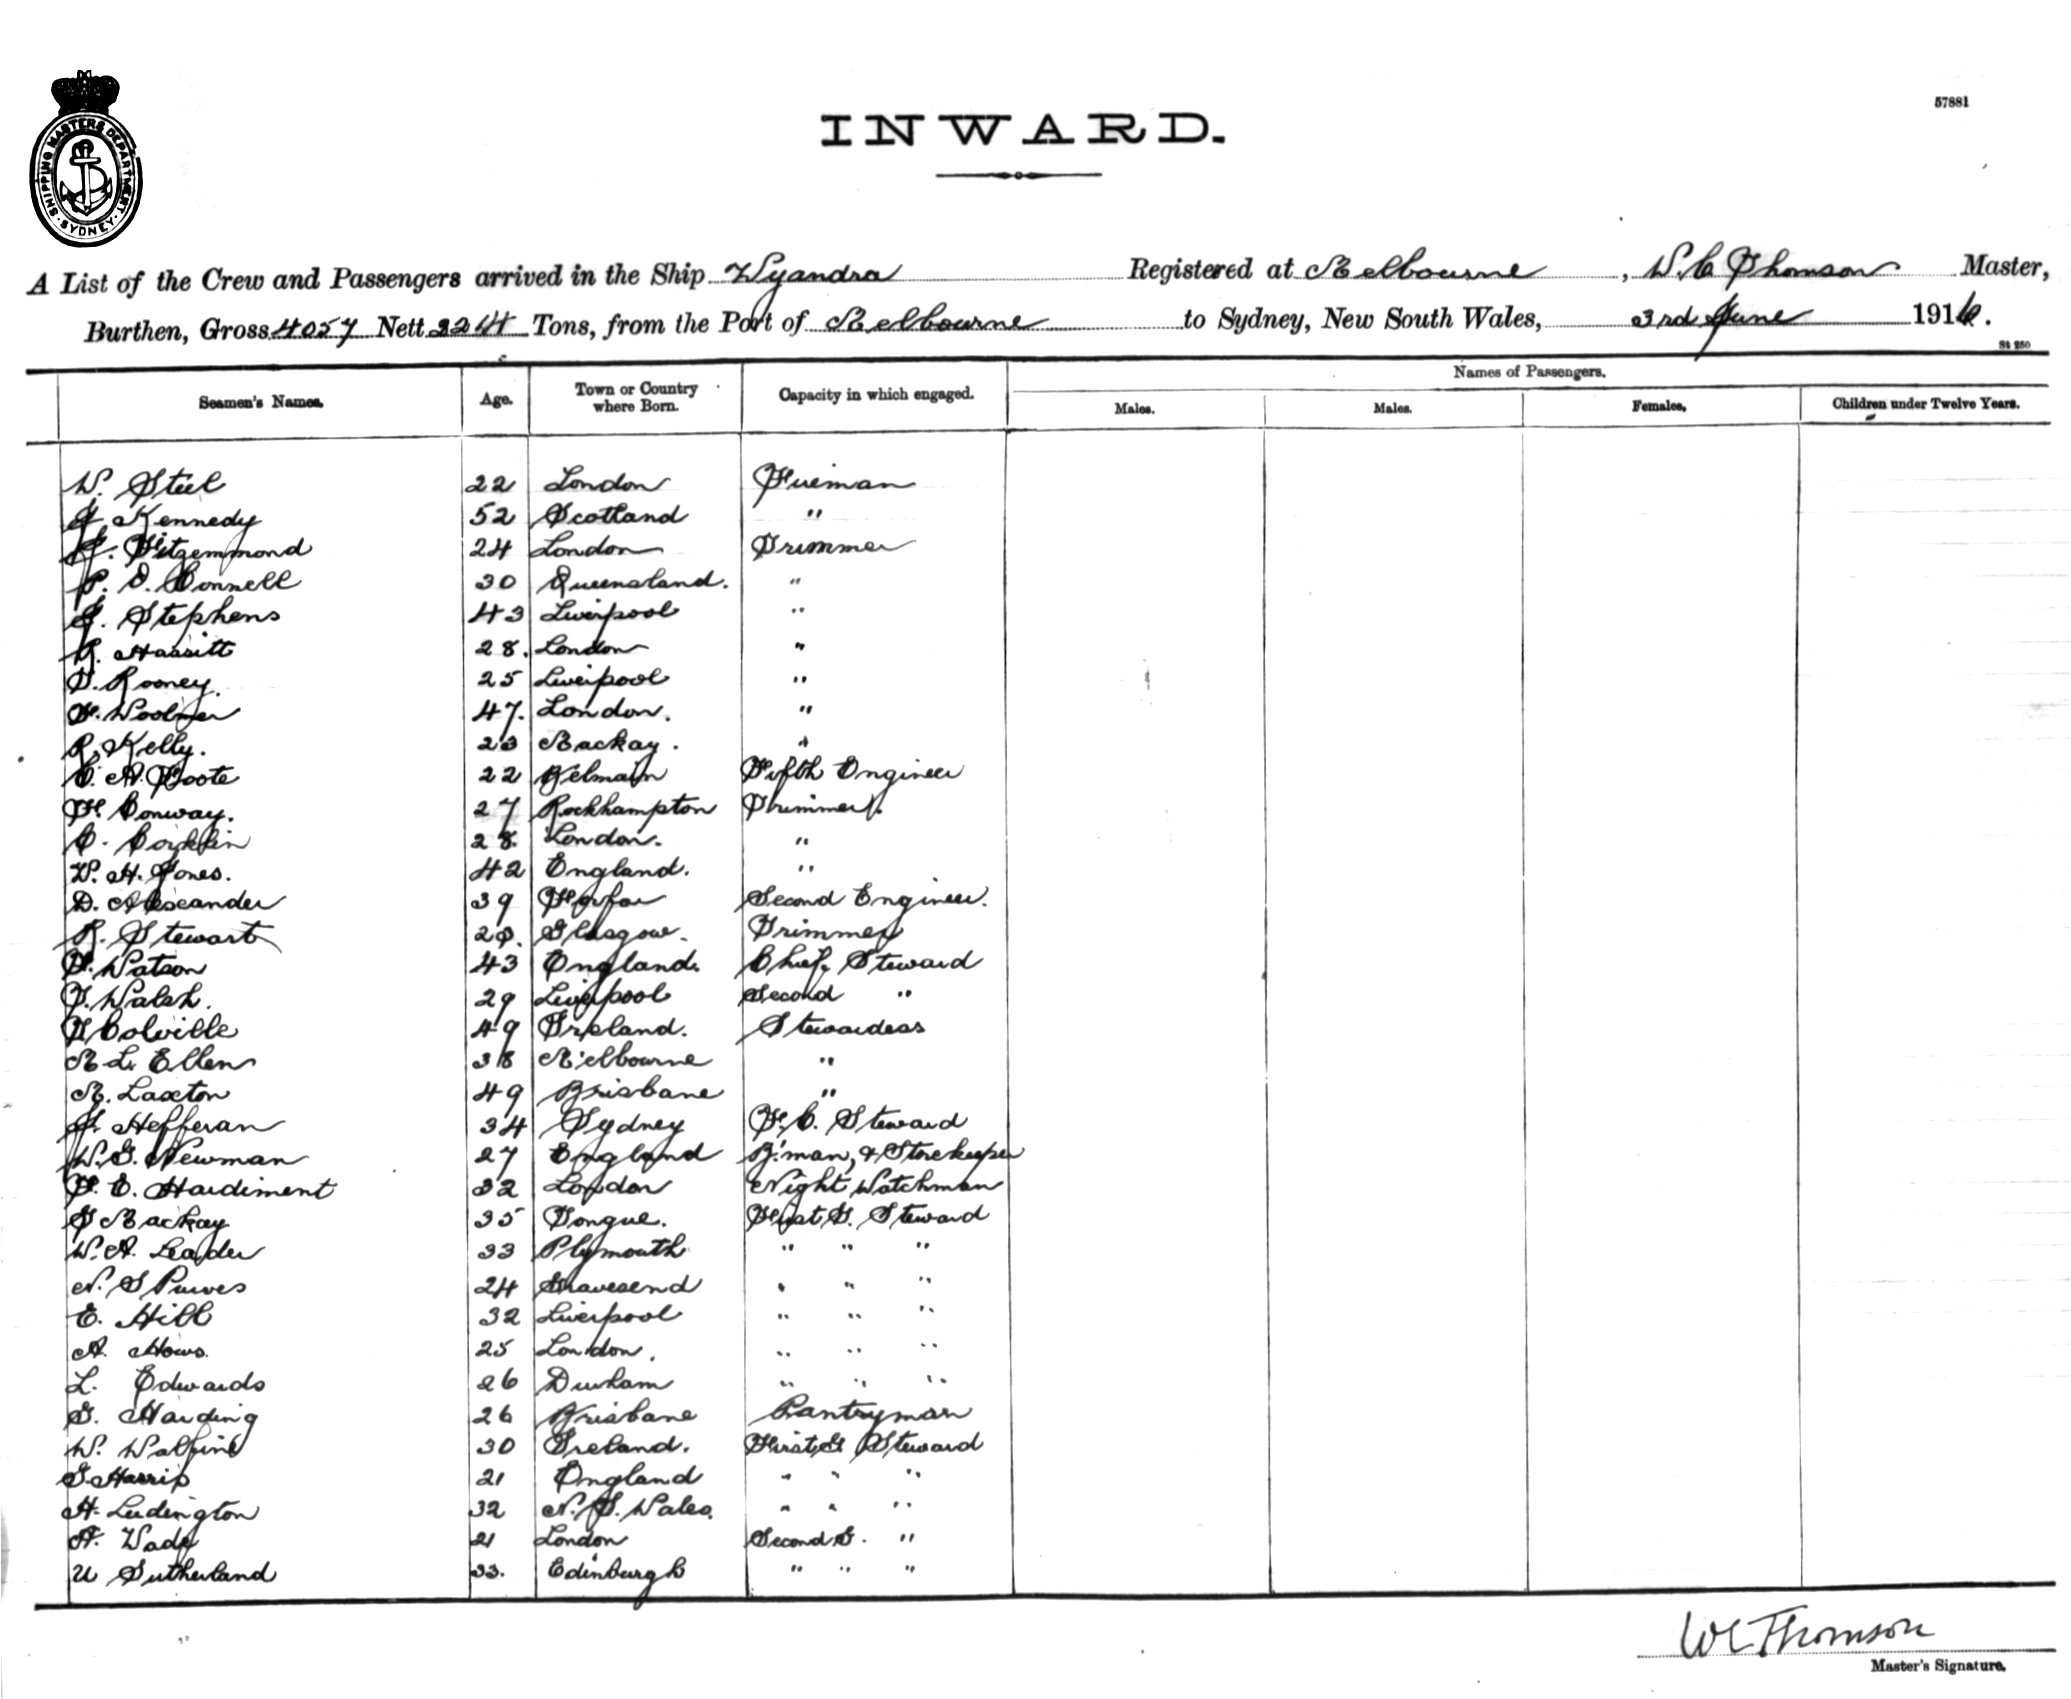 57881
SHIPPING MASTERS DEPARTMENT · SYDNEY ·
INWARD.
A List of the Crew and Passengers arrived in the Ship Wyandra Registered at Melbourne, W. C Thomson Master,
Burthen, Gross 4057 Nett 2244 Tons, from the Port of Melbourne to Sydney, New South Wales, 3rd June 1916.
St 250
Names of Passengers.
Seamen's Names. Age. Town or Country where Born. Capacity in which engaged. Males. Males. Females. Children under Twelve Years.
W. Steel 22 London Fireman
J. Kennedy 52 Scotland "
J. Fitzemmond 24 London Trimmer
P. O. Connell 30 Queensland. "
J. Stephens 43 Liverpool "
Hassitt 28. London "
T. Rooney. 25 Liverpool "
F. Woolmer 47. London. "
R. Kelly. 23 Mackay. "
C. A. Foote 22 Belmain Fifth Engineer
F. Conway. 27 Rockhampton Trimmer.
C. 28. London. "
W. H. Jones. 42 England. "
D. Alexander 39 Forfar Second Engineer.
R. Stewart Glasgow. Trimmer
Watson 43 England. Chief Steward
T. Walsh. 29 Liverpool Second "
Colville 49 Ireland. Stewardess
M. L. Ellen 38 Melbourne "
M. Laxton 49 Brisbane "
J. Hefferan 34 Sydney F. C. Steward
W. G. Newman 27 England B'man, & Storekeeper
F. E. Hardiment 32 London Night Watchman
Mackay 35 Tongue. First G. Steward
W. A. Leader 33 Plymouth " " "
N. S Purves 24 Gravesend " " "
E. Hill 32 Liverpool " " "
A. Hows. 25 London. " " "
L. Edwards 26 Durham " " "
G. Harding 26 Brisbane Pantryman
W. 30 Ireland. First G Steward
G. Harris 21 England " " "
H. Ludington 32 N. S. Wales. " " "
Wade 21 London Second G. "
U Sutherland 33. Edinburgh " " "
WC Thomson
Master's Signature.